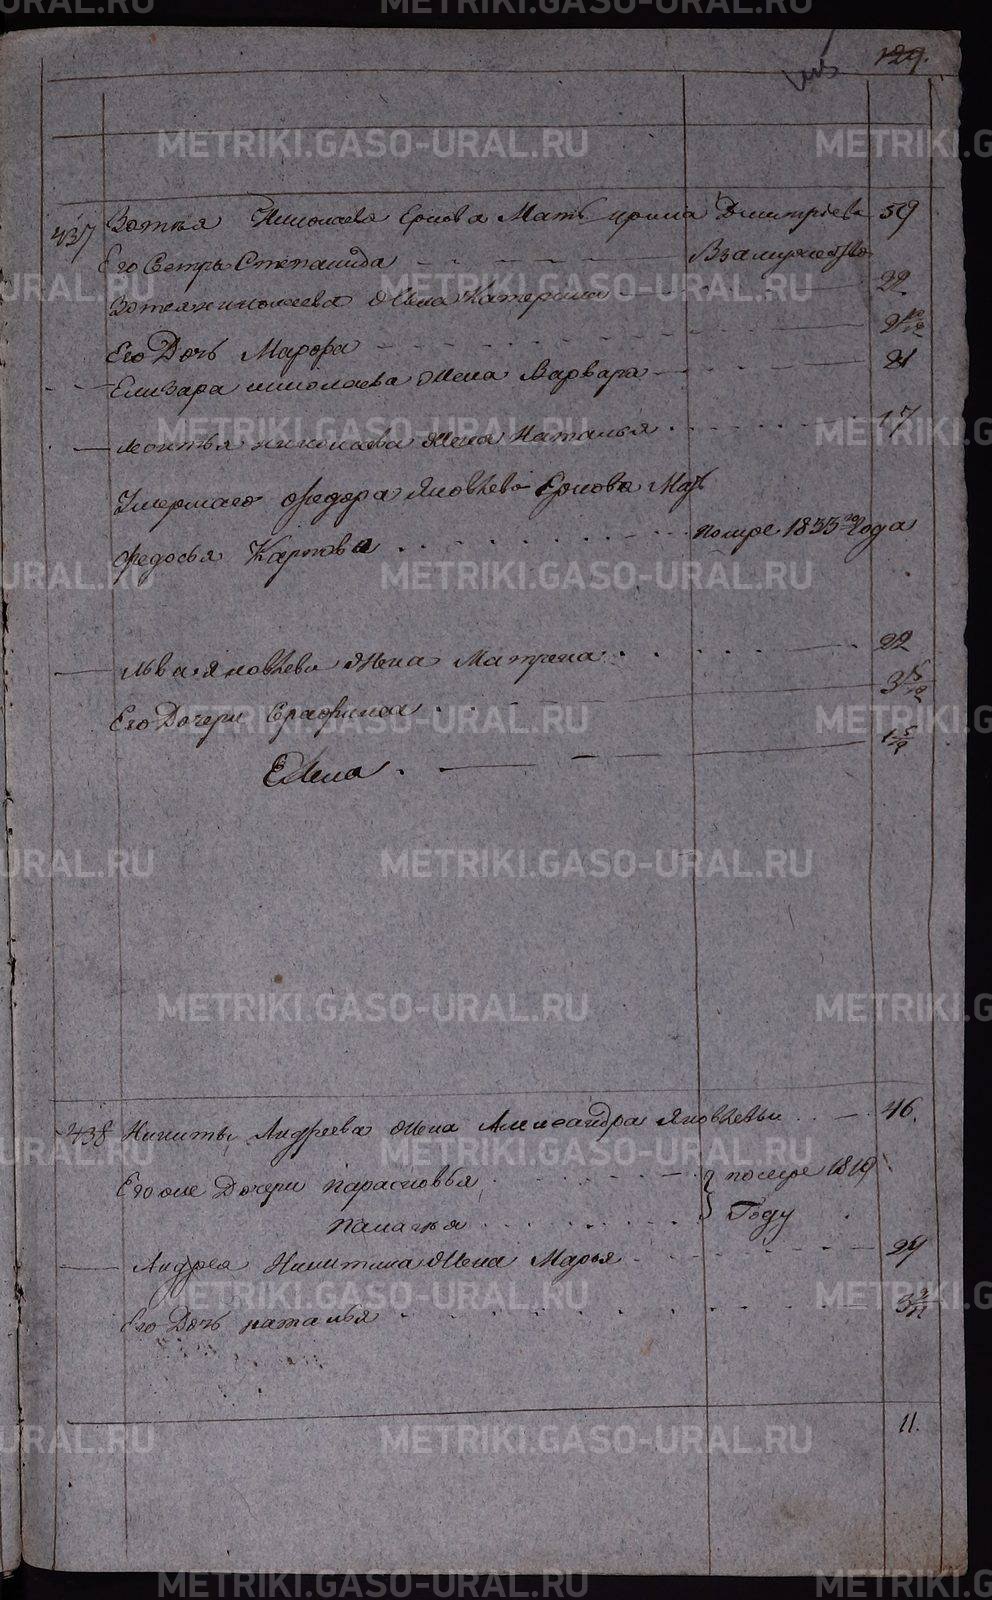 129.
437 Зотья Николаева Ершова Мать Ирина Дмитріева 59
Его Сестра Степанида Взамужестве
Зотея николаева Жена Катерина 22
Его Дочь Марфа
Елизара николаева Жена Варвара 21
Леонтья николаева Жена Наталья 17
Умершаго Федора Яковлева Ершова Мать
Федосья Карпова помре 1833го года
Льва Яковлева Жена Матрена 22
Его Дочери Серафима 3 5/12
Елена
438 Никиты Андреева Жена Александра Яковлевы 46.
Его же Дочери парасковья помре 1819
палагья Году
Андрея Никитина Жена Марья 24
Его Дочь наталья
11.
METRIKI.GASO-URAL.RU